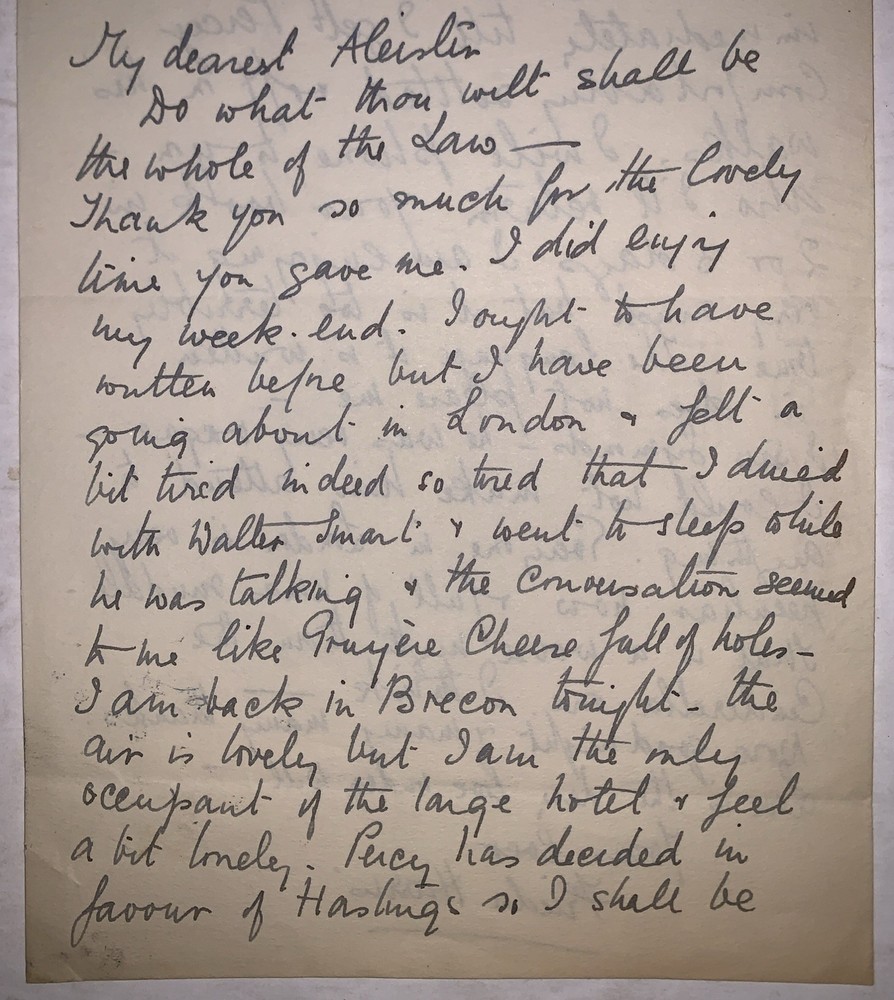 My dearest Aleister
Do what thou wilt shall be
the whole of the Law —
Thank you so much for the lovely
time you gave me. I did enjoy
my week-end. I ought to have
written before but I have been
going about in London & felt a
bit tired indeed so tired that I dined
with Walter Smart & went to sleep while
he was talking & the conversation seemed
to me like Gruyère Cheese full of holes –
I am back in Brecon tonight – the
air is lovely but I am the only
occupant of the large hotel & feel
a bit lonely. Percy has decided in
favour of Hastings so I shall be